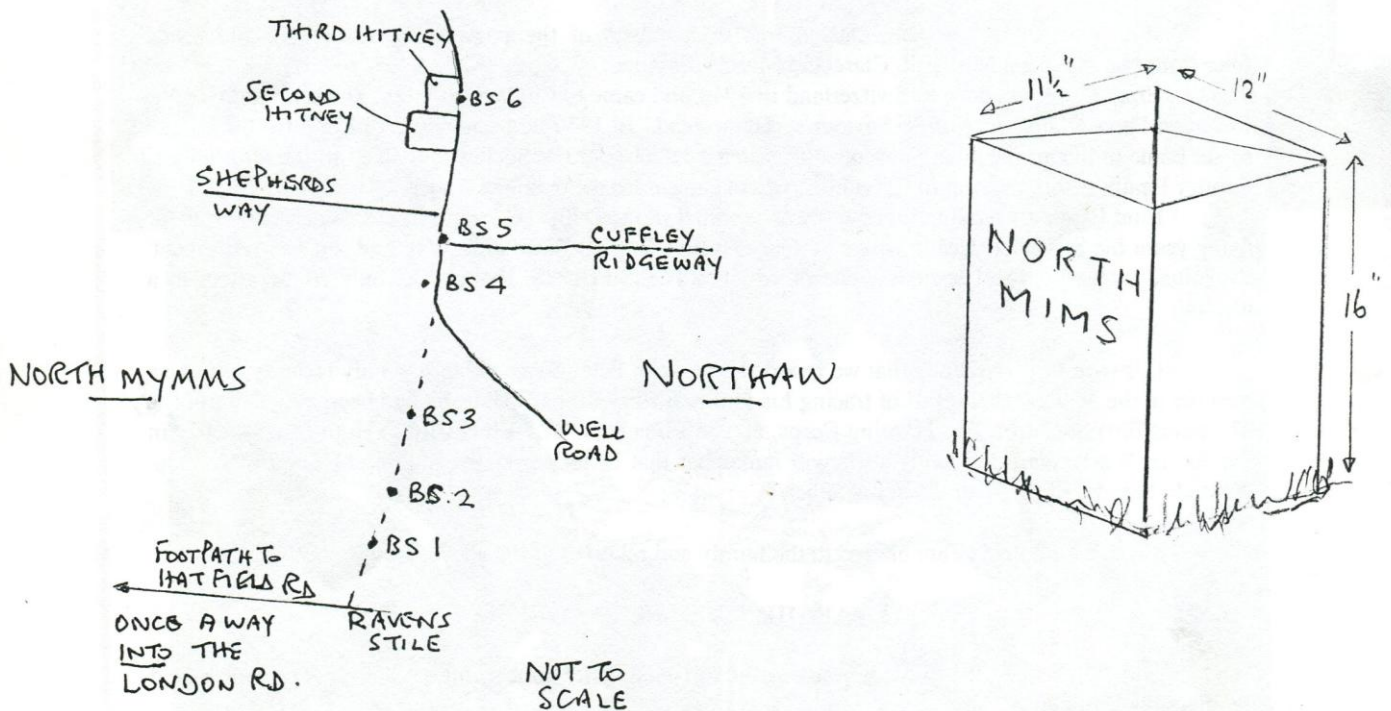 THIRD HITNEY
BS 6
SECOND
HITNEY
SHEPHERDS
WAY
BS 5
CUFFLEY
RIDGEWAY
BS 4
NORTH MYMMS
NORTHAW
BS3
WELL
ROAD
BS.2
BS 1
FOOTPATH TO
HATFIELD RD
ONCE AWAY
INTO THE
LONDON RD.
RAVENS
STILE
NOT TO
SCALE
11½"
12"
16"
NORTH
MIMS